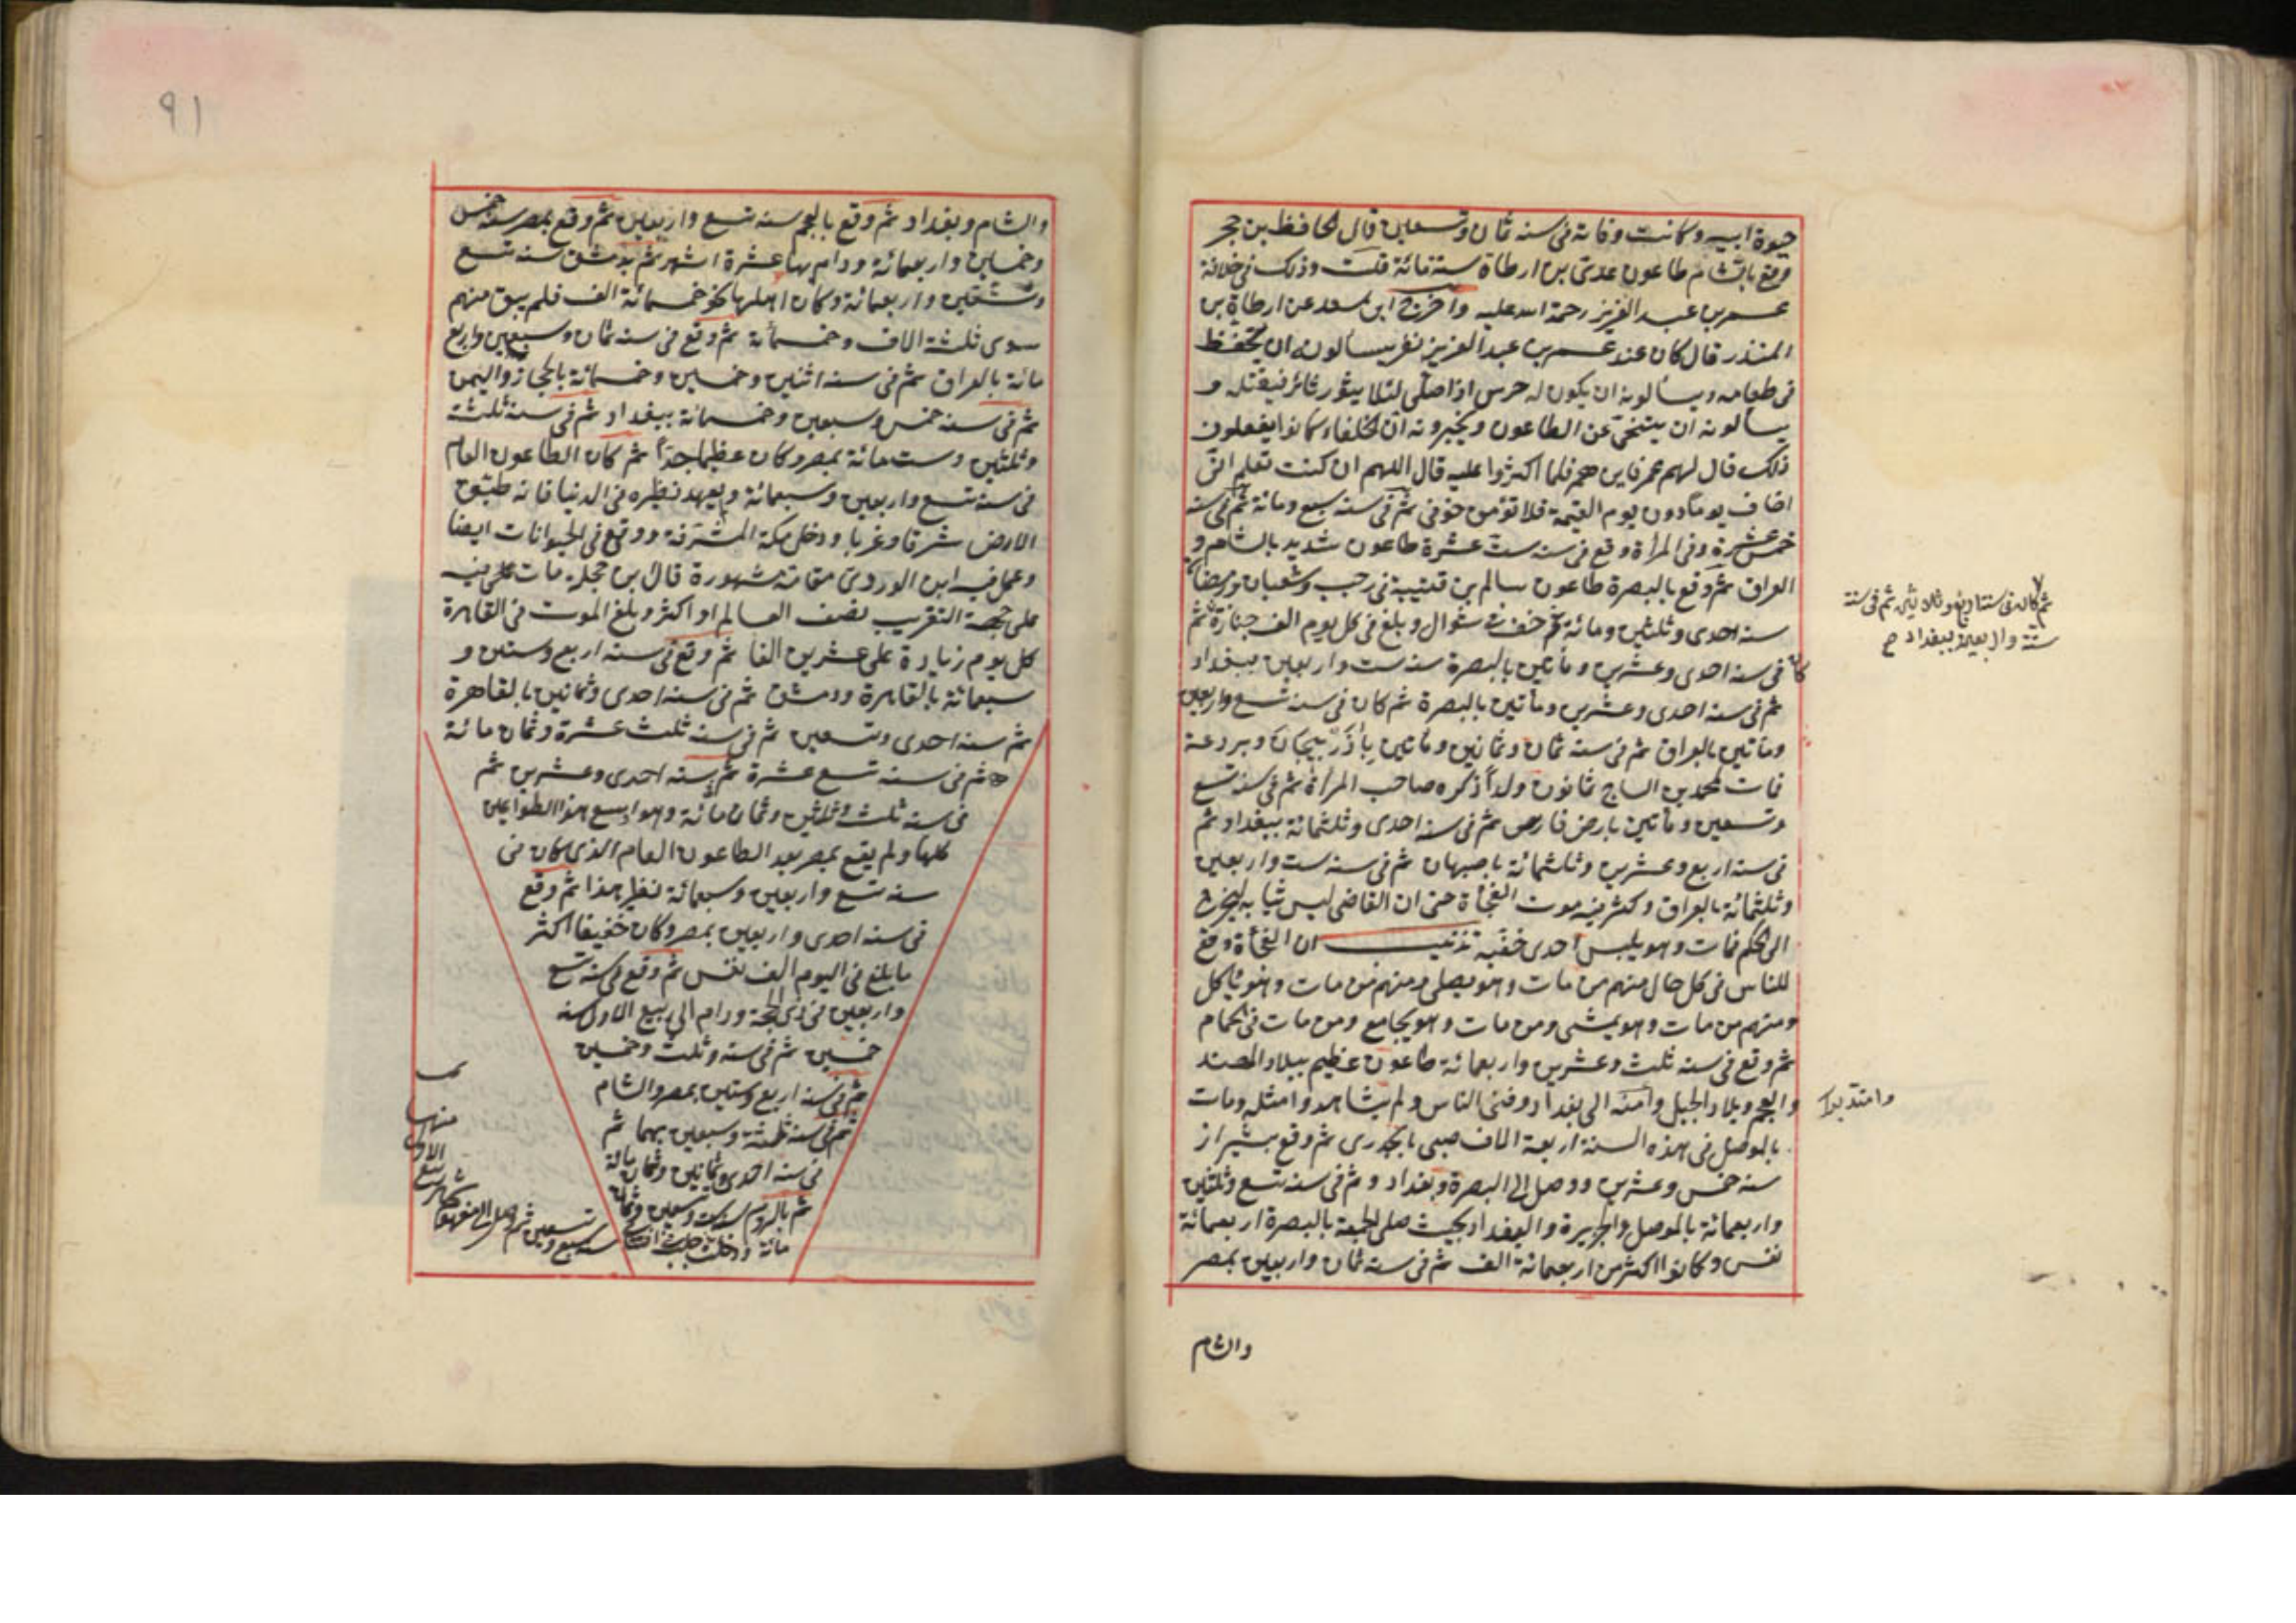 حيوة ابيه وكانت وفاته فى سنه ثمان وتسعين قال الحافظ بن حجر
وقع بالشام طاعون عدى بن ارطاة سنة مائة قلت وذلك فى خلافة
عمر بن عبد العزيز رحمة الله عليه واخرج ابن سعد عن ارطاة بن
المنذر قال كان عند عمر بن عبد العزيز نفر يسألونه ان يتحفظ
فى طعامه ويسألونه ان يكون له حرس اذا صلى لئلا يثور ثائر فيقتله و
يسألونه ان يتنحى عن الطاعون ويخبرونه ان الخلفاء كانوا يفعلون
ذلك قال لهم عمر فاين هم فلما اكثروا عليه قال اللهم ان كنت تعلم انى
اخاف يوما دون يوم القيمة فلا تؤمن خوفى ثم فى سنه سبع ومائة ثم فى سنه
خمس عشرة وفى المرأة وقع فى سنه ست عشرة طاعون شديد بالشام و
العراق ثم وقع بالبصرة طاعون سالم بن قتيبة فى رجب وشعبان ورمضان
سنه احدى وثلثين ومائة ثم خف فى شوال وبلغ فى كل يوم الف جنازة ثم
ثم كان فى سنة اربع وثلاثين ثم فى سنة
ستة واربعين ببغداد صح
كان فى سنه احدى وعشرين ومأتين بالبصرة سنه ست واربعين ببغداد
ثم فى سنه احدى وعشرين ومأتين بالبصرة ثم كان فى سنه تسع واربعين
ومأتين بالعراق ثم فى سنه ثمان وثمانين ومأتين باذربيجان وبردعة
فمات لمحمد بن الساج ثمانون ولدا ذكره صاحب المرأة ثم فى سنه تسع
وتسعين ومأتين بارض فارس ثم فى سنه احدى وثلثمائة ببغداد ثم
فى سنه اربع وعشرين وثلثمائة باصبهان ثم فى سنه ست واربعين
وثلثمائة بالعراق وكثر فيه موت الفجأة حتى ان القاضى لبس ثيابه ليخرج
الى الحكم فمات وهو يلبس احدى خفيه تذنيب ان الفجأة وقع
للناس فى كل حال منهم من مات وهو يصلى ومنهم من مات وهو يأكل
ومنهم من مات وهو يمشى ومن مات وهو يجامع ومن مات فى الحمام
ثم وقع فى سنه ثلث وعشرين واربعمائة طاعون عظيم ببلاد الهند
والعجم وبلاد الجبل وامتد الى بغداد وفنى الناس ولم يشاهدوا مثله ومات
وامتد
بالموصل فى هذه السنة اربعة الاف صبى بالجدرى ثم وقع بشيراز
سنه خمس وعشرين ووصل الى البصرة وبغداد و ثم فى سنه تسع وثلثين
واربعمائة بالموصل والجزيرة والبغداد بحيث صلى الجمعة بالبصرة اربعمائة
نفس وكانوا اكثر من اربعمائة الف ثم فى سنه ثمان واربعين بمصر
والشام
٩١
والشام وبغداد ثم وقع بالعجم سنه تسع واربعين ثم وقع بمصر سنه خمس
وخمسين واربعمائة ودام بها عشرة اشهر ثم بدمشق سنه تسع
وستين واربعمائة وكان اهلها نحو خمسمائة الف فلم يبق منهم
سوى ثلثة الاف وخمسمائة ثم وقع فى سنه ثمان وسبعين واربع
مائة بالعراق ثم فى سنه اثنين وخمسين وخمسمائة بالحجاز واليمن
ثم فى سنه خمس وسبعين وخمسمائة ببغداد ثم فى سنه ثلثة
وثلثين وست مائة بمصر وكان عظيما جدا ثم كان الطاعون العام
فى سنه تسع واربعين وسبعمائة ولم يعهد نظيره فى الدنيا فانه طبق
الارض شرقا وغربا ودخل مكة المشرفة ووقع فى الحيوانات ايضا
وعمل فيه ابن الوردى مقامته مشهورة قال بن حجلة مات فيه
على جهة التقريب نصف العالم او اكثر وبلغ الموت فى القاهرة
كل يوم زيادة على عشرين الفا ثم وقع فى سنه اربع وستين و
سبعمائة بالقاهرة ودمشق ثم فى سنه احدى وثمانين بالقاهرة
ثم سنه احدى وتسعين ثم فى سنه ثلث عشرة وثمان مائة
ثم فى سنه تسع عشرة ثم سنه احدى وعشرين ثم
فى سنه ثلث وثلثين وثمان مائة وهو اوسع هذا الطواعين
كلها ولم يقع بمصر بعد الطاعون العام الذى كان فى
سنه تسع واربعين وسبعمائة نظير هذا ثم وقع
فى سنه احدى واربعين بمصر وكان خفيفا اكثر
ما بلغ فى اليوم الف نفس ثم وقع فى سنه تسع
واربعين فى ذى الحجة ودام الى ربيع الاول سنه
خمسين ثم فى سنه وثلث وخمسين
ثم فى سنه اربع وستين بمصر والشام
ثم فى سنه ثلثة وسبعين بهما ثم
فى سنه احدى وثمانين وثمان مائة
ثم بالروم سنه ست وتسعين وثمان
مائة ودخلت حلب
منها
الاول
ربيع